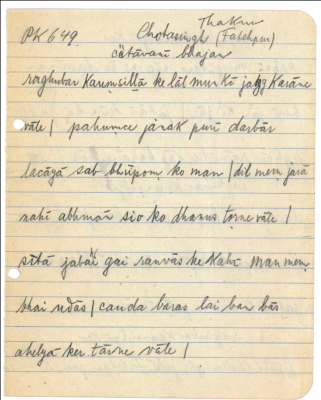 PK 649. Thakur
Chotasingh (Fatehpur)
cētāvanī bhajan
raghubar Karumsillā ke lāl muni kī jagg Karāne
vāle | pahumce janak purī darbār
lacāyā sab bhūpom ko man | dil mem jarā
nahī abhmān siv ko dhanus torne vāle |
sītā jabāi gai ranvās ke kahī man mem
bhai udās | cauda baras lai ban bās
ahelyā ker tārne vāle |